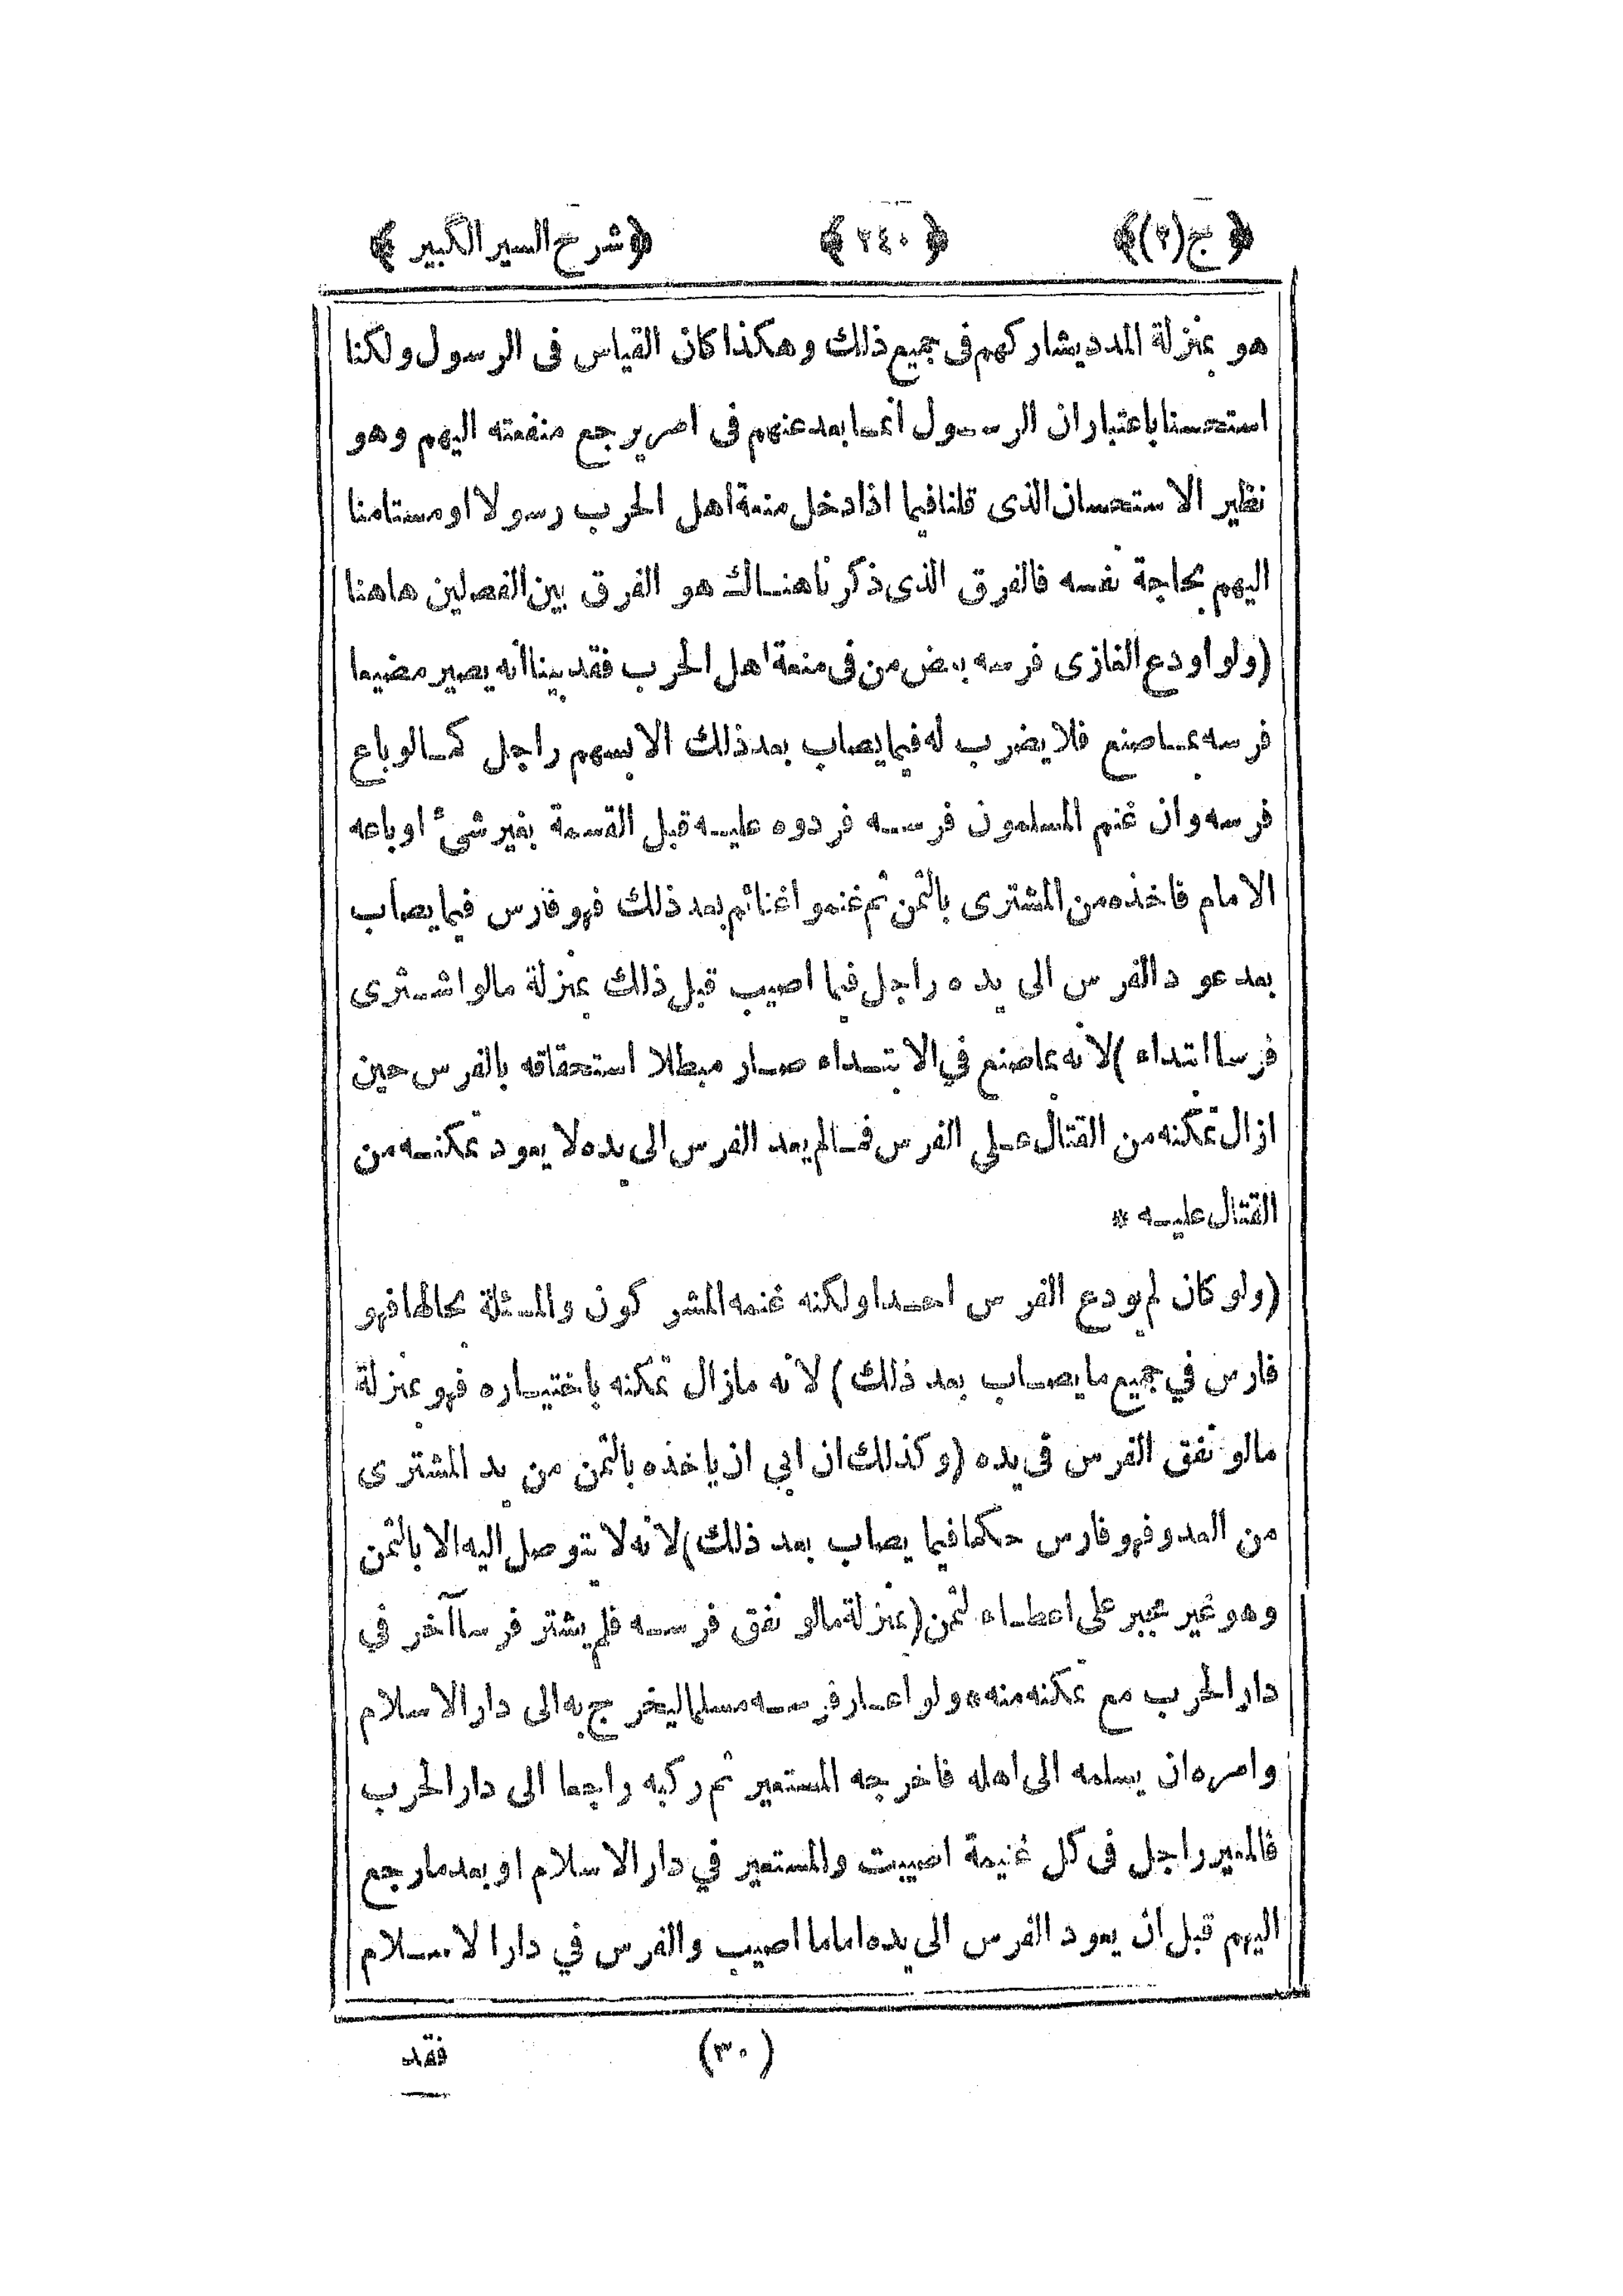 ﴿ ج(٢)﴾ ﴿ ٢٤٠ ﴾ ﴿شرح السير الكبير ﴾
هو بمنزلة المدد يشاركهم فى جميع ذلك وهكذا كان القياس فى الرسول ولكنا
استحسنا باعتبار ان الرسول انما بعد عنهم فى امر يرجع منفعته اليهم وهو
نظير الاستحسان الذى قلنا فيما اذا دخل منعة اهل الحرب رسولا او مستامنا
اليهم بحاجة نفسه فالفرق الذى ذكرناهناك هو الفرق بين الفصلين هاهنا
(ولو اودع الغازى فرسه بعض من فى منعة اهل الحرب فقد بينا انه يصير مضيعا
فرسه بما صنع فلا يضرب له فيما يصاب بعد ذلك الا بسهم راجل كما لو باع
فرسه وان غنم المسلمون فرسه فردوه عليه قبل القسمة بغير شئ او باعه
الامام فاخذه من المشترى بالثمن ثم غنموا غنائم بعد ذلك فهو فارس فيما يصاب
بعد عود الفرس الى يده راجل فيما اصيب قبل ذلك بمنزلة مالو اشترى
فرسا ابتداء ) لانه بما صنع في الابتداء صار مبطلا استحقاقه بالفرس حين
ازال تمكنه من القتال على الفرس فما لم يعد الفرس الى يده لا يعود تمكنه من
القتال عليه *
(ولو كان لم يودع الفرس احدا ولكنه غنمه المشركون والمسئلة بحالها فهو
فارس في جميع ما يصاب بعد ذلك ) لانه مازال تمكنه باختياره فهو بمنزلة
مالو نفق الفرس فى يده (وكذلك ان ابي ان ياخذه بالثمن من يد المشترى
من العدو فهو فارس حكما فيما يصاب بعد ذلك) لانه لا يتوصل اليه الا بالثمن
وهو غير مجبر على اعطاء لثمن (بمنزلة مالو نفق فرسه فلم يشتر فرسا آخر في
دار الحرب مع تمكنه منه ه ولو اعار فرسه مسلما ليخرج به الى دار الاسلام
وامره ان يسلمه الى اهله فاخرجه المستعير ثم ركبه راجعا الى دار الحرب
فالمعير راجل فى كل غنيمة اصيبت والمستعير في دار الاسلام او بعد مارجع
اليهم قبل ان يعود الفرس الى يده اما ما اصيب والفرس في دار الاسلام
(٣٠) فقد